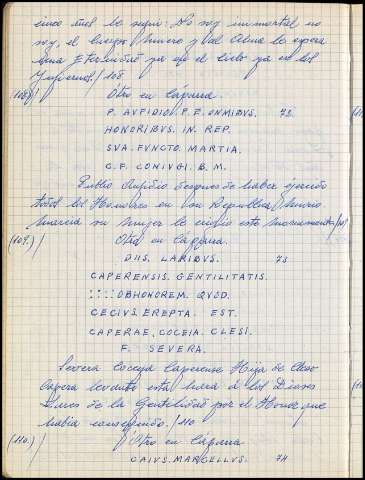 cinco años lo seguí: No soy inmortal no
soy, el cuerpo Muero y del Alma le espera
una Eternidad ya en el Cielo ya en los
Infiernos / 108
(108)/ Otro en Cáparra.
P. AVFIDIO. P. F. ONMIBVS. 73
HONORIBVS. IN. REP.
SVA. FVNCTO. MARTIA.
C. F. CONIVGI. B. M.
Publio Aufidio despues de haber ejercido
todos los Honores en su Republica, Murio
Marcia su Mujer le erigio este Monumento/109
(109.)/ Otro en Cáparra.
DIIS. LARIBVS. 73
CAPERENSIS. GENTILITATIS.
:::: OBHONOREM. QVOD.
CECIVS. EREPTA. EST.
CAPERAE, COCEIA. CLESI.
F. SEVERA.
Severa Coceya Caperense Hija de
Capera levanto esta hara á los Dioses
Lares de la Gentilidad por el Honor que
habia conseguido. / 110
(110.)/ Otro en Cáparra
CAIVS. MARCELLVS. 74